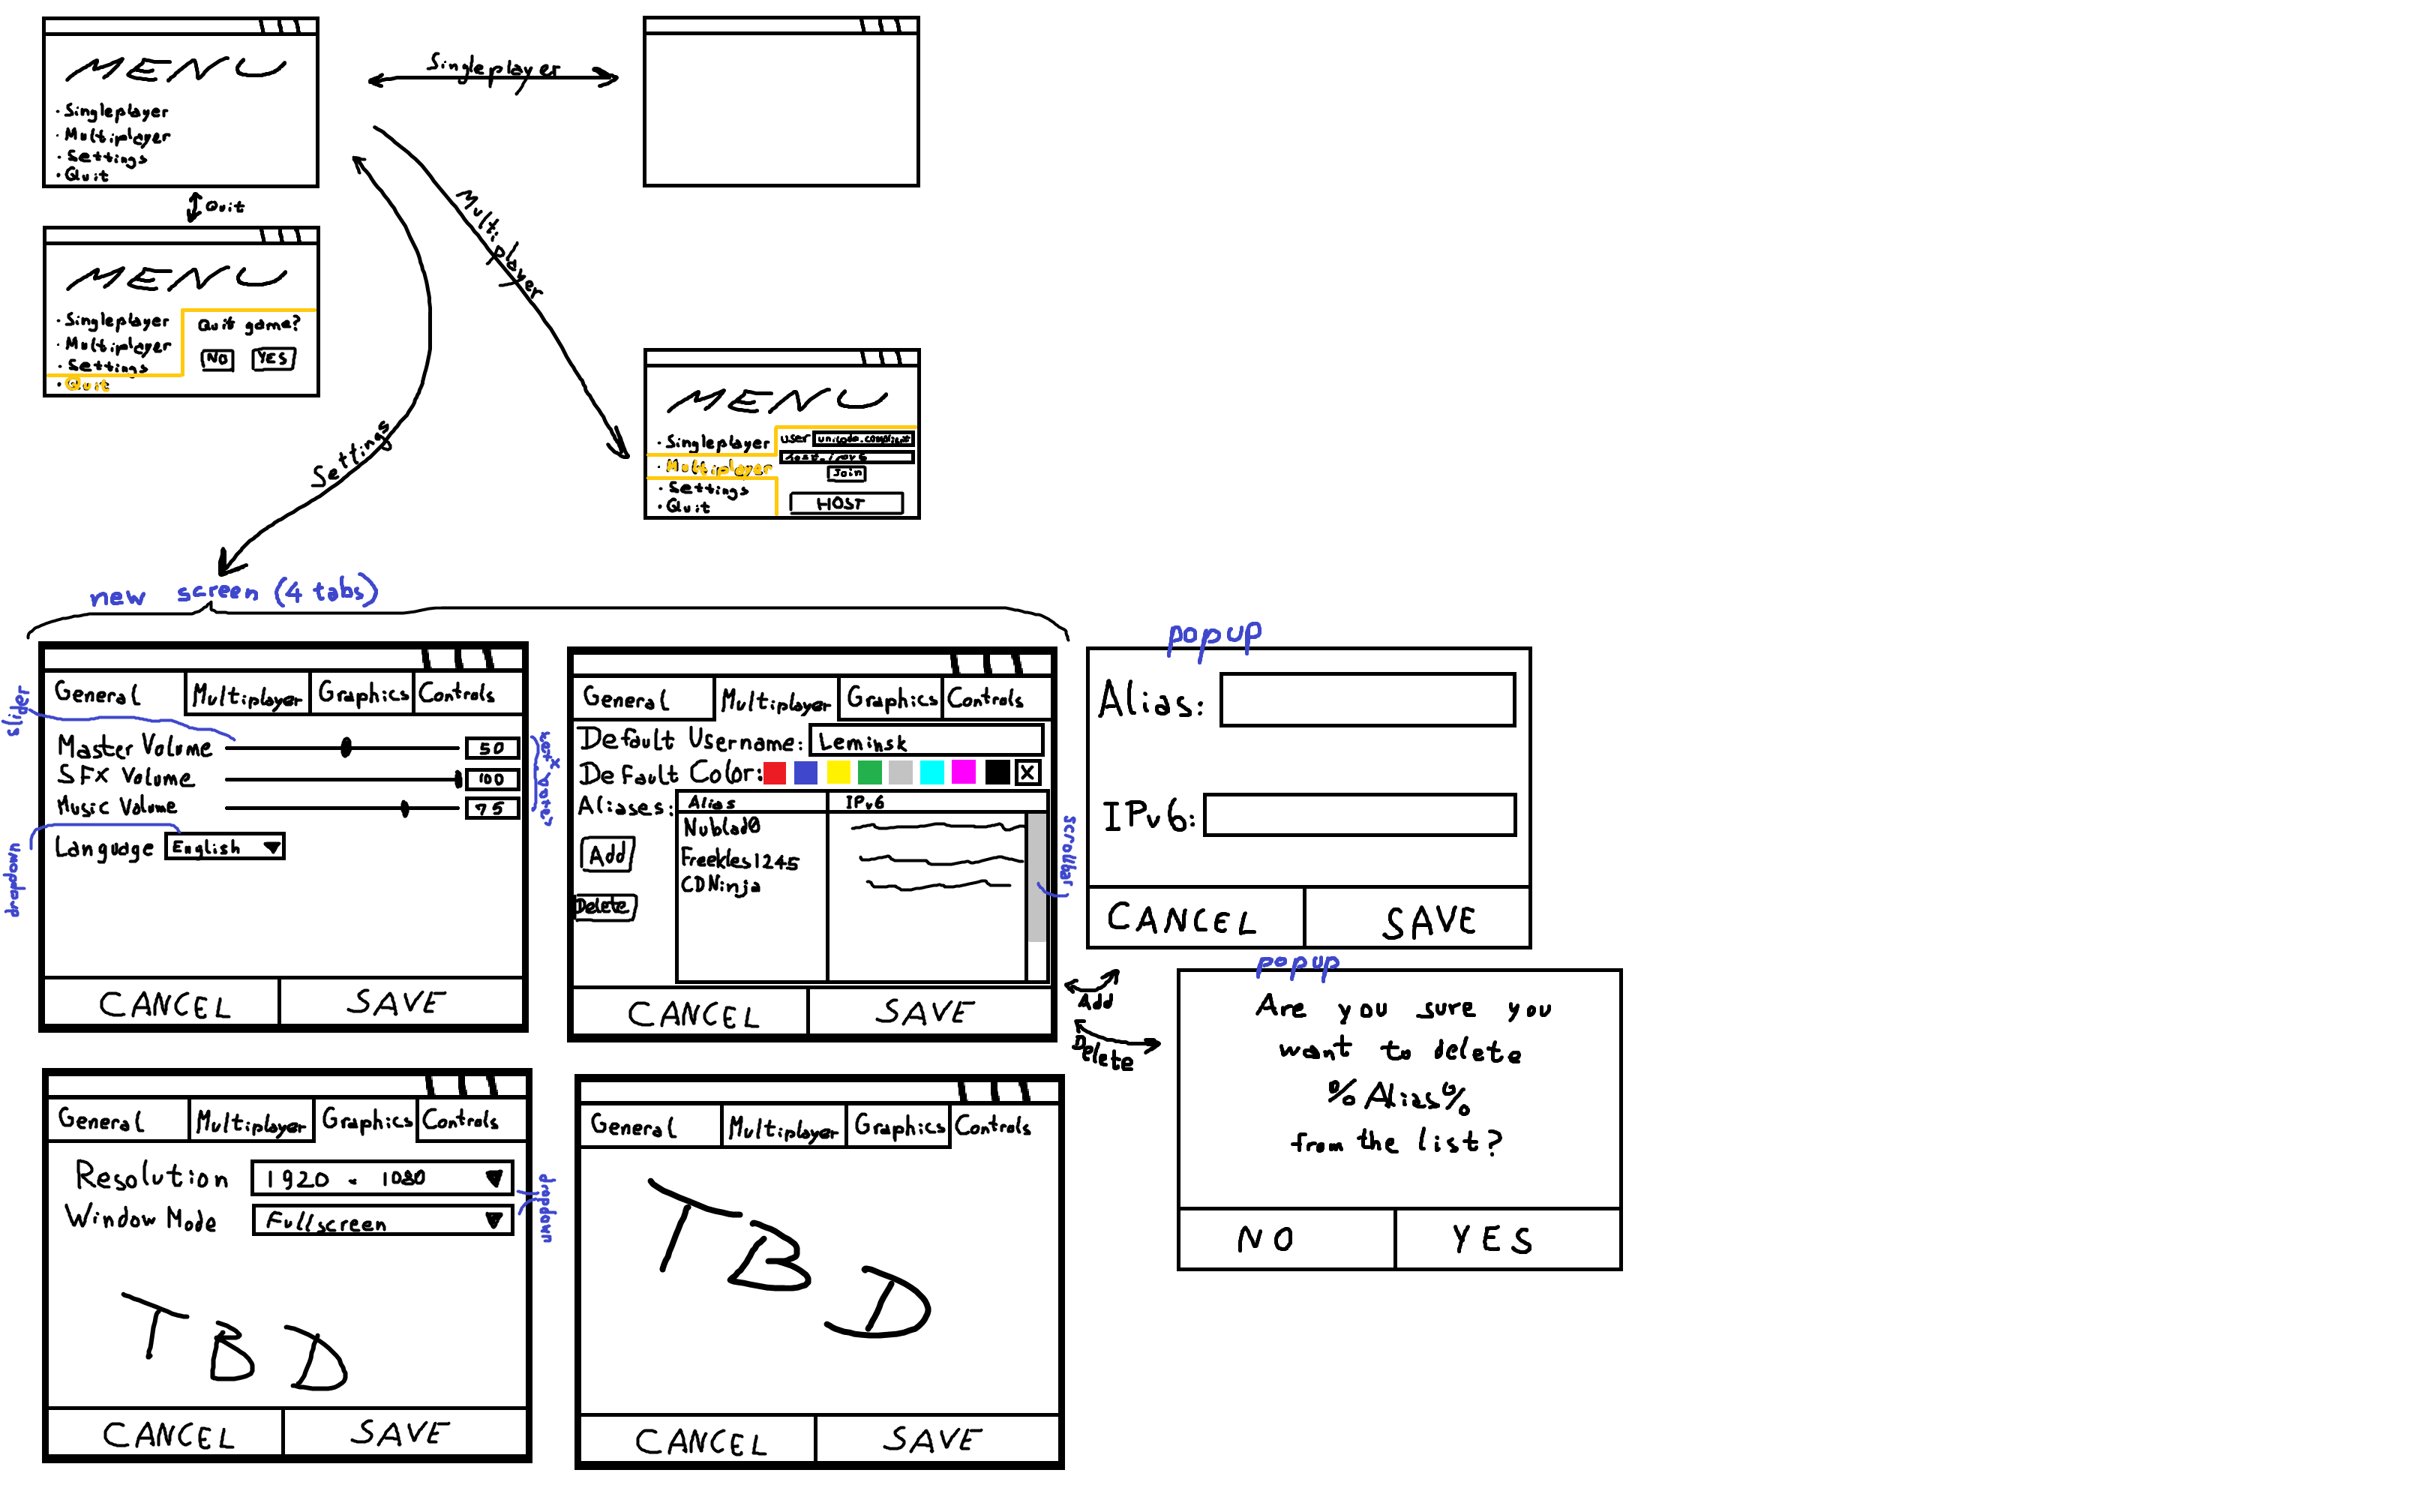 MENU
· Singleplayer
· Multiplayer
· Settings
· Quit
Singleplayer
Quit
Multiplayer
MENU
· Singleplayer
· Multiplayer
· Settings
· Quit
Quit game?
NO YES
Settings
MENU
· Singleplayer
· Multiplayer
· Settings
· Quit
user
Join
HOST
new screen (4 tabs)
General Multiplayer Graphics Controls
slider
Master Volume 50
SFX Volume 100
Music Volume 75
Language English
dropdown
CANCEL SAVE
General Multiplayer Graphics Controls
Default Username: Leminsk
Default Color: X
Aliases: Alias IPv6
Nublad0
Freekles1245
CDNinja
Add
Delete
scrollbar
CANCEL SAVE
popup
Alias:
IPv6:
CANCEL SAVE
Add
Delete
popup
Are you sure you
want to delete
%Alias%
from the list?
NO YES
General Multiplayer Graphics Controls
Resolution 1920 × 1080
Window Mode Fullscreen
dropdown
TBD
CANCEL SAVE
General Multiplayer Graphics Controls
TBD
CANCEL SAVE